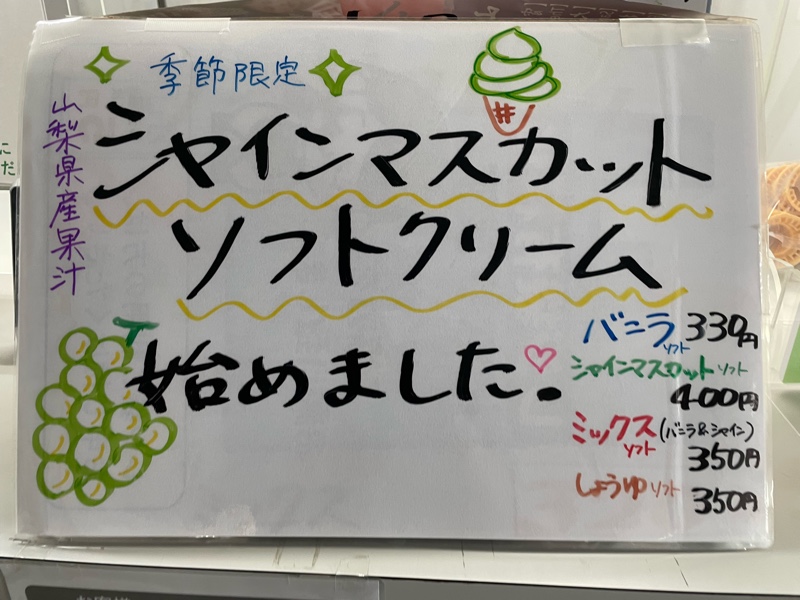 季節限定
山梨県産果汁
シャインマスカット
ソフトクリーム
始めました。
バニラソフト 330円
シャインマスカットソフト
400円
ミックスソフト(バニラ&シャイン)
350円
しょうゆソフト 350円